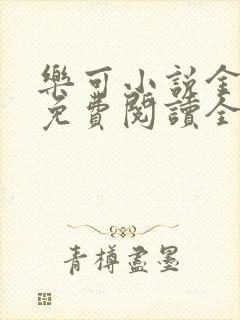 樂可小說全
免費閱讀全
青樽盡墨